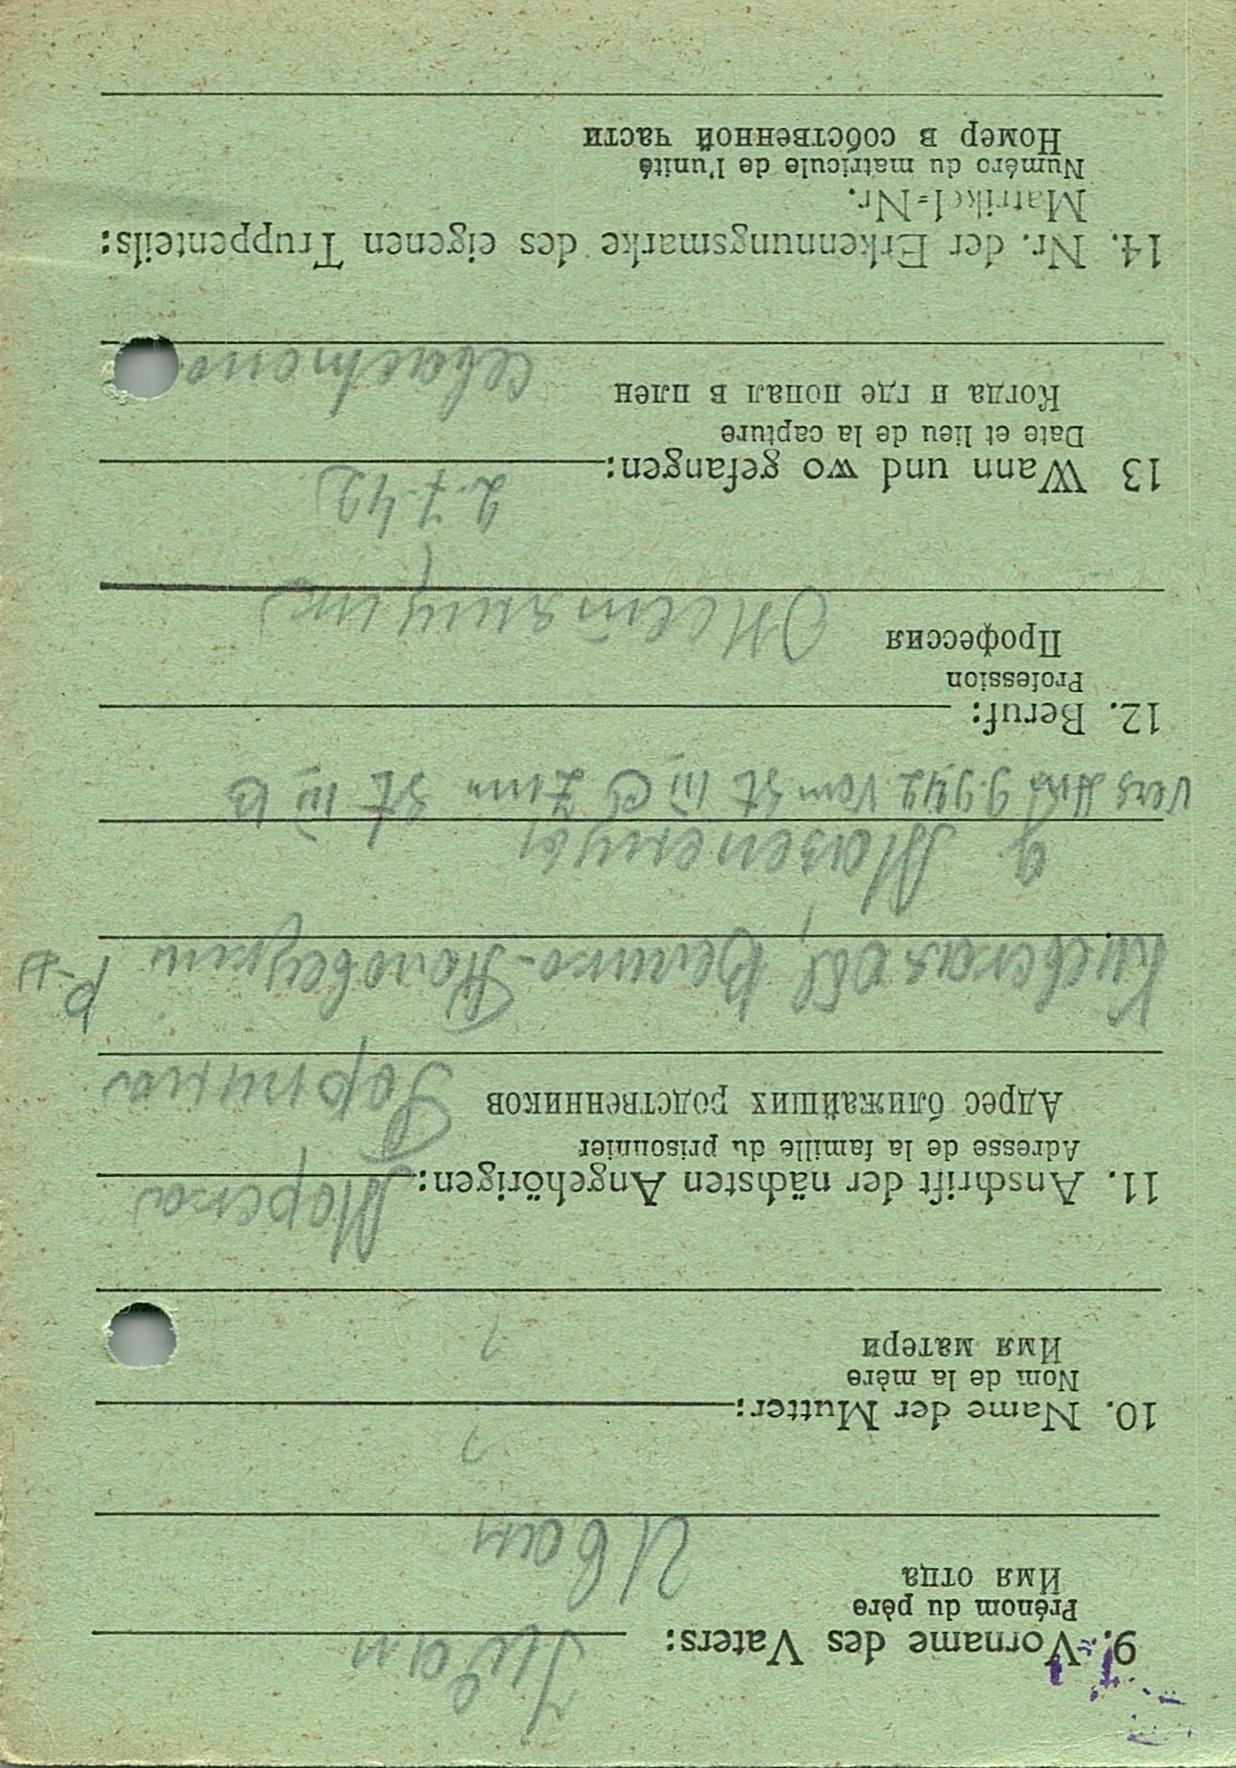 9. Vorname des Vaters: Iwan
Prénom du père
Имя отца Иван
10. Name der Mutter: ?
Nom de la mère
Имя матери ?
11. Anschrift der nächsten Angehörigen: Морена
Adresse de la famille du prisonnier
Адрес ближайших родственников Горпина
Киевская обл, Велико-Половецкий р-н
д. Мазепенцы
vers Abs 9.9.42 vom St III C zum St III B
12. Beruf:
Profession
Профессия
13 Wann und wo gefangen: 2.7.42
Date et lieu de la capture
Когда и где попал в плен
14. Nr. der Erkennungsmarke des eigenen Truppenteils:
Matrikel=Nr.
Numéro du matricule de l'unité
Номер в собственной части